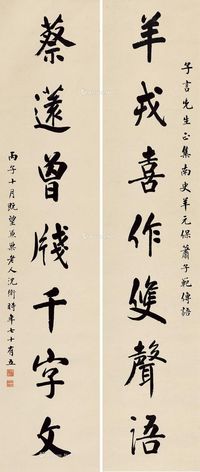 子言先生正集南史羊元保蕭子範傳語
羊戎喜作雙聲語
蔡薳曾牋千字文
丙子十月既望兼巢老人沈衛時年七十有五